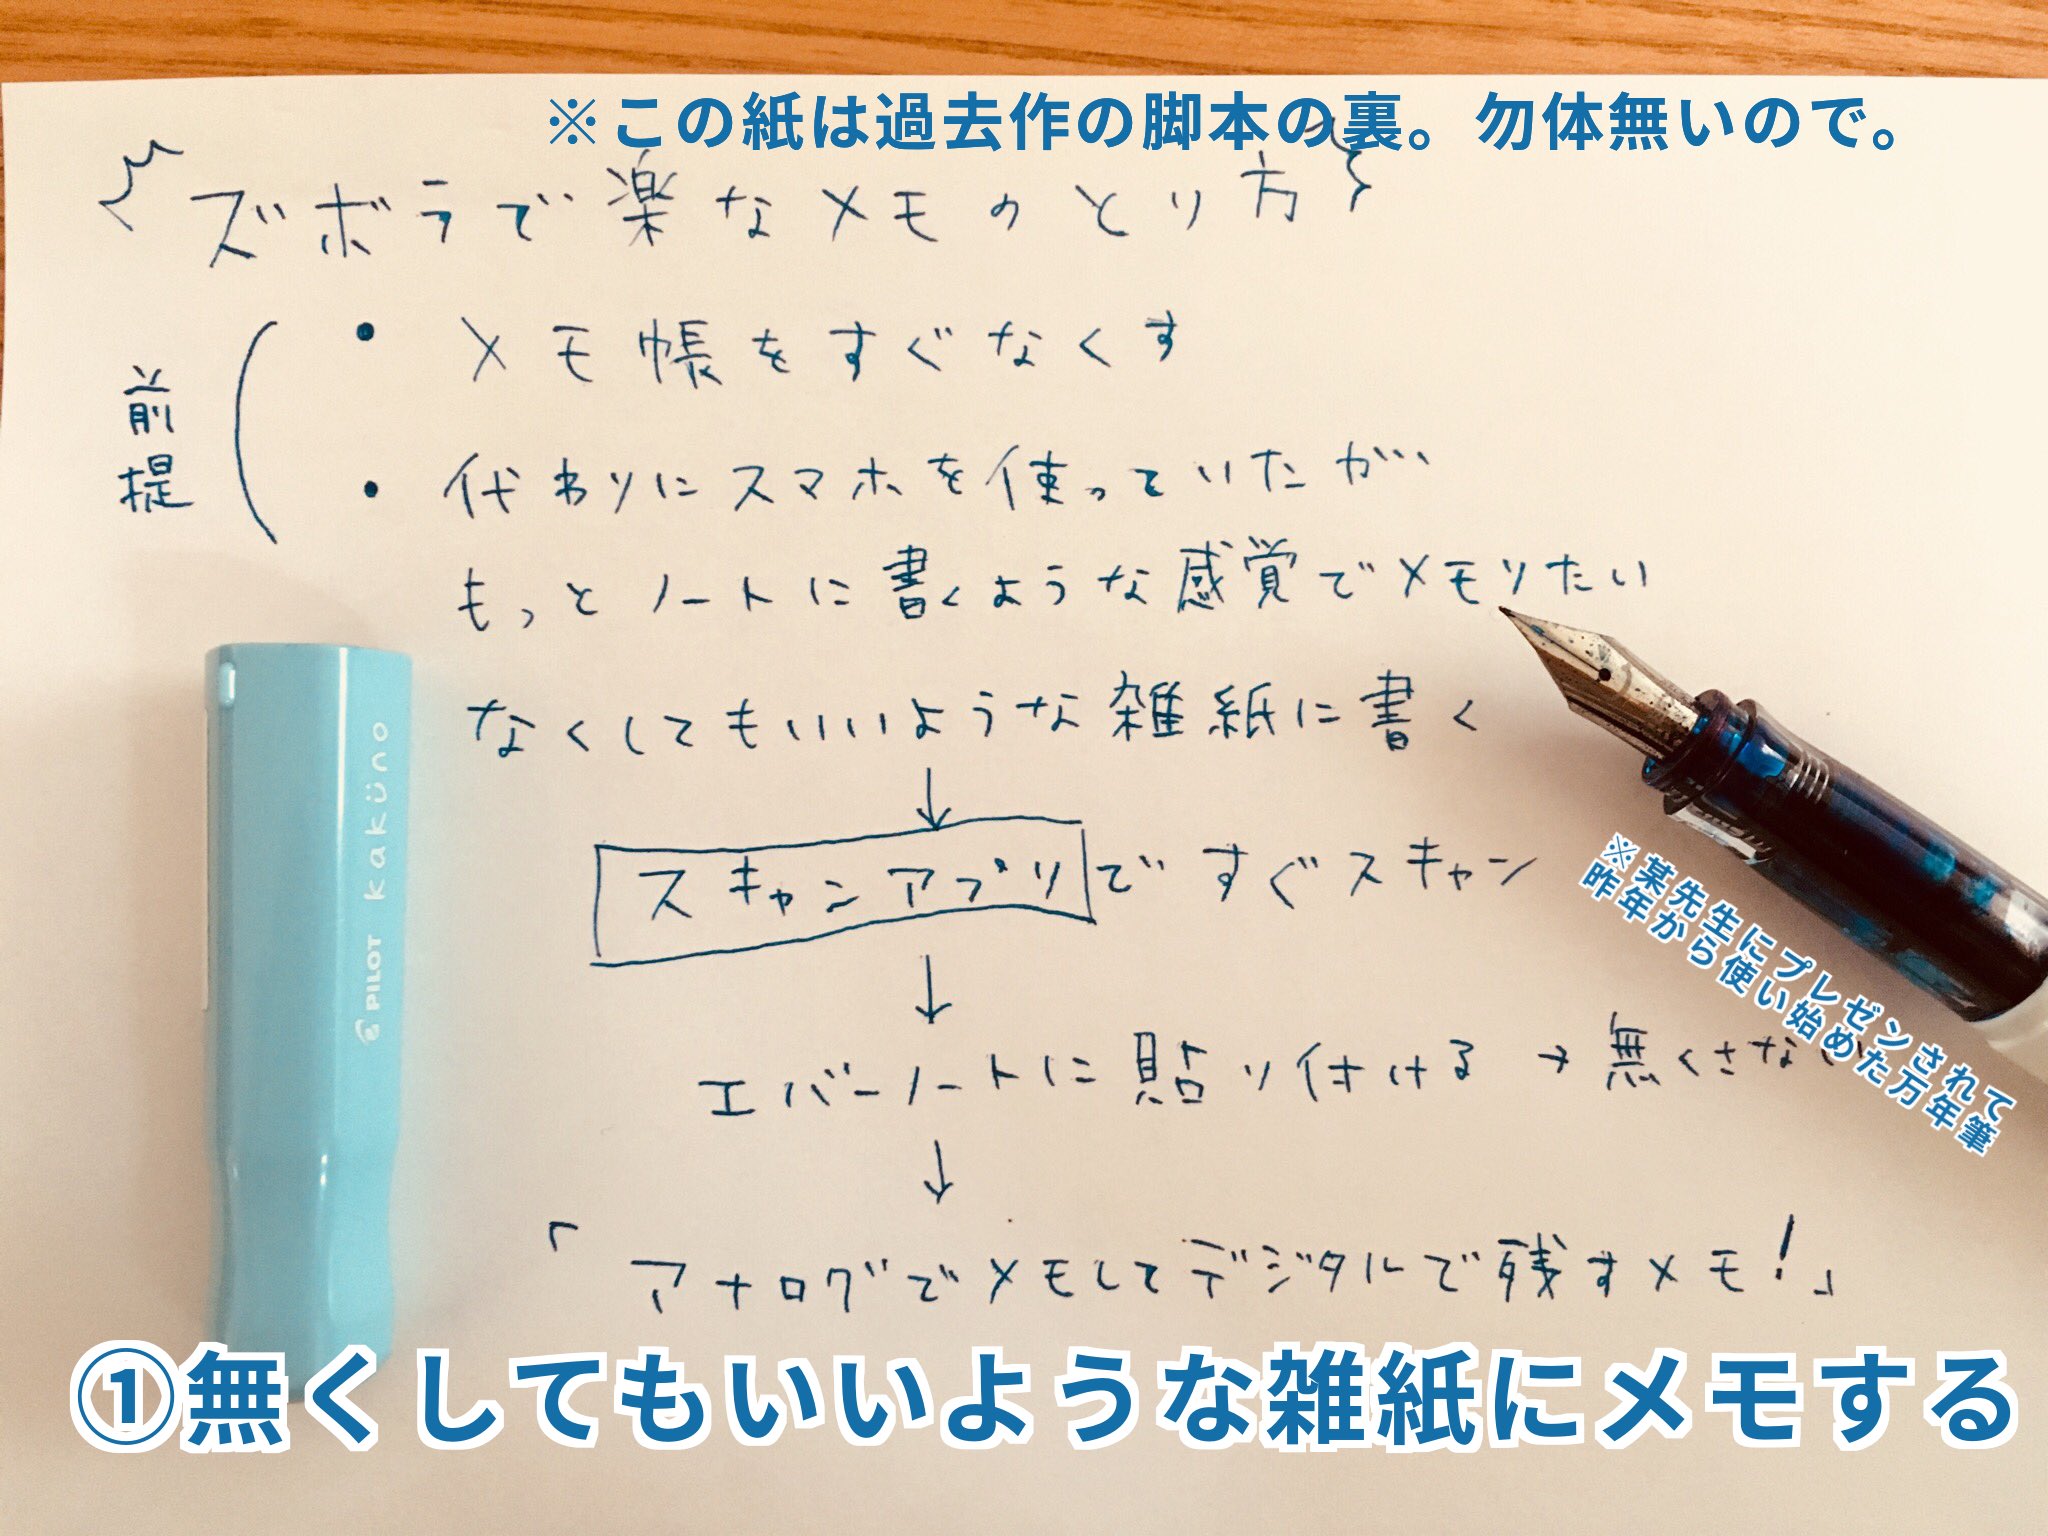 ※この紙は過去作の脚本の裏。勿体無いので。
ズボラで楽なメモのとり方
前提
・メモ帳をすぐなくす
・代わりにスマホを使っていたが…
もっとノートに書くような感覚でメモりたい
なくしてもいいような雑紙に書く
↓
スキャンアプリですぐスキャン
↓
エバーノートに貼り付ける→無くさない
↓
「アナログでメモしてデジタルで残すメモ!」
PILOT kaküno
※某先生にプレゼンされて
昨年から使い始めた万年筆
①無くしてもいいような雑紙にメモする